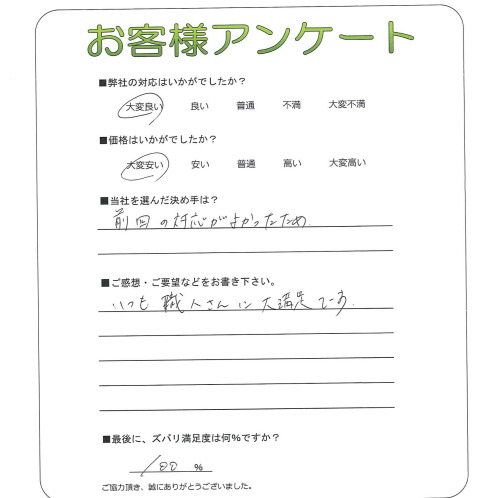 お客様アンケート
■弊社の対応はいかがでしたか?
大変良い 良い 普通 不満 大変不満
■価格はいかがでしたか?
大変安い 安い 普通 高い 大変高い
■当社を選んだ決め手は?
前回の対応がよかったため.
■ご感想・ご要望などをお書き下さい。
いつも職人さんに大満足です.
■最後に、ズバリ満足度は何%ですか?
100 %
ご協力頂き、誠にありがとうございました。